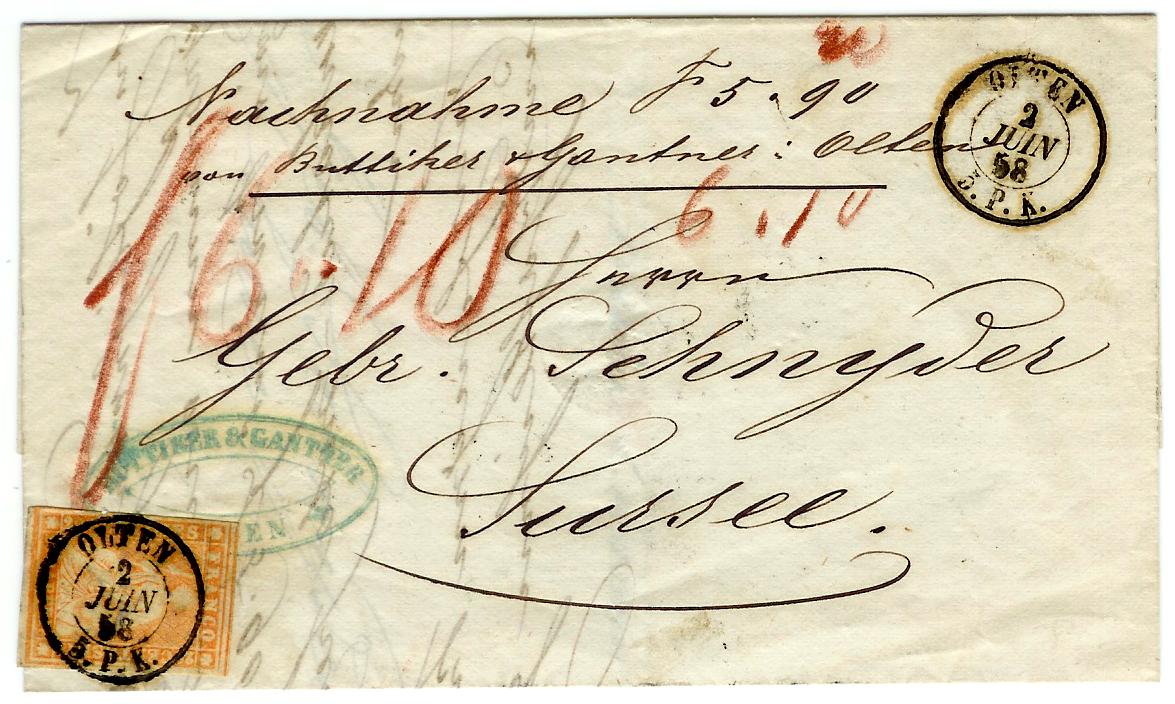 Nachnahme F 5.90
von Buttiker & Gantner: Olten
OLTEN
2
JUIN
58
5. P. K.
6.10
6.10
Herrn
Gebr. Schnyder
Sursee.
BUTTIKER & GANTNER
OLTEN
OLTEN
2
JUIN
58
5. P. K.